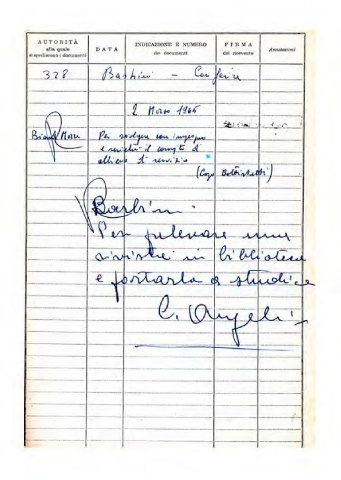 AUTORITÀ
alla quale
si spediscono i documenti
DATA
INDICAZIONE E NUMERO
dei documenti
FIRMA
del ricevente
Annotazioni
328 Barbini -
2 Marzo 1966
Per svolgere con impegno
e serietà il compito di
allievo di servizio
(Capo
Barbini:
Per prelevare una
rivista in biblioteca
e portarla a studio
C. Angeli